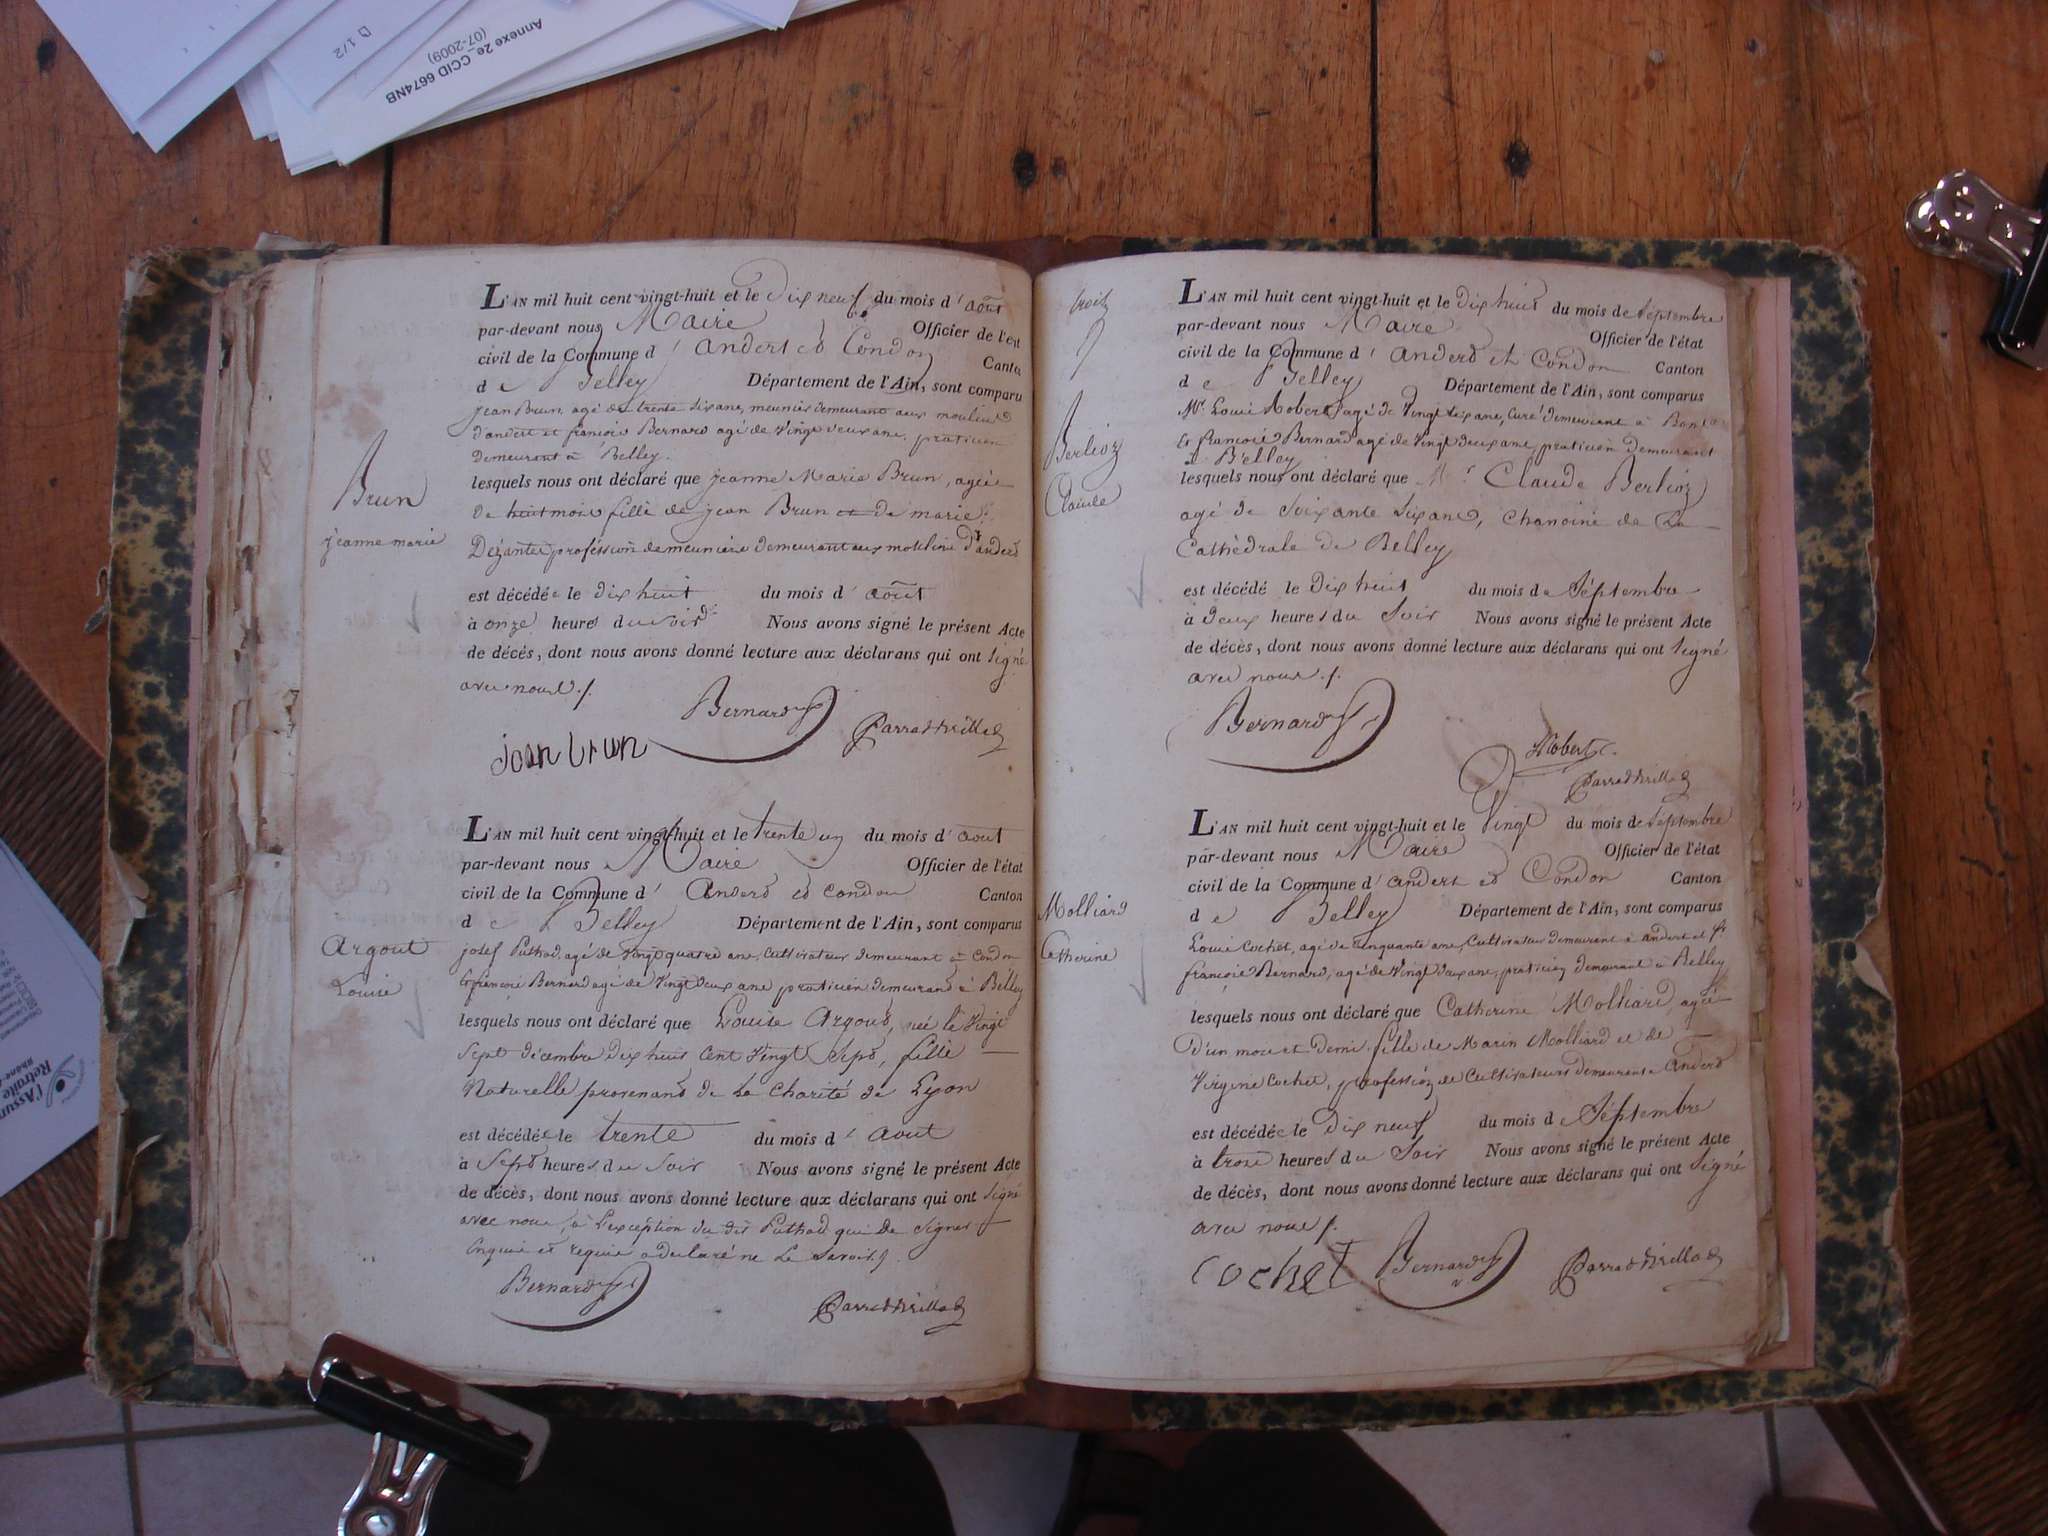 Annexe 2e_CCID 6674NB
(07-2009)
1/2
L'AN mil huit cent vingt-huit et le Dix neuf du mois d'août
par-devant nous Maire Officier de l'état
civil de la Commune d'andert et Condon Canton
de Belley Département de l'Ain, sont comparu
jean Brun, agé de trente six ans, meunier demeurant aux moulins
d'andert et françois Bernard agé de Vingt deux ans, praticien
Demeurant à Belley.
lesquels nous ont déclaré que jeanne Marie Brun, agée
de huit mois fille de jean Brun et de marie
Dezanter profession de meuniers demeurant aux moulins d'andert
est décédée le dix huit du mois d'août
à onze heures du soir Nous avons signé le présent Acte
de décés, dont nous avons donné lecture aux déclarans qui ont signé
avec nous ./.
Brun
jeanne marie
Bernard
jean brun
L'AN mil huit cent vingt-huit et le trente un du mois d'aout
par-devant nous Maire Officier de l'état
civil de la Commune d'Andert et Condon Canton
de Belley Département de l'Ain, sont comparus
josef Puthod, agé de Vingt quatre ans, Cultivateur demeurant à Condon
Et françois Bernard agé de Vingt deux ans praticien demeurant à Belley
lesquels nous ont déclaré que Louise Argout, née le Vingt
Sept décembre Dix huit Cent Vingt Sept, fille
Naturelle provenant de La Charité de Lyon
est décédée le trente du mois d'Aout
à Sept heures du Soir Nous avons signé le présent Acte
de décès, dont nous avons donné lecture aux déclarans qui ont Signé
avec nous, à L'exception du dit Puthod qui de Signer
Enquis et requis a declaré ne Le Savoir ./.
Argout
Louise
Bernard
L'AN mil huit cent vingt-huit et le Dix huit du mois de Septembre
par-devant nous Maire Officier de l'état
civil de la Commune d'andert et Condon Canton
de Belley Département de l'Ain, sont comparus
Mr. Louis Robert, agé de Vingt six ans, Curé demeurant à
Et François Bernard agé de Vingt deux ans, praticien Demeurant
à Belley
lesquels nous ont déclaré que Mr Claude Berlioz
agé de Soixante Six ans, Chanoine de La
Cathédrale de Belley
est décédé le Dix huit du mois de Séptembre
à Deux heures du Soir Nous avons signé le présent Acte
de décès, dont nous avons donné lecture aux déclarans qui ont Signé
avec nous ./.
Berlioz
Claude
Bernard
Robert
L'AN mil huit cent vingt-huit et le Vingt du mois de Séptembre
par-devant nous Maire Officier de l'état
civil de la Commune d'andert et Condon Canton
de Belley Département de l'Ain, sont comparus
Louis Cochet, agé de Cinquante ans, Cultivateur demeurant à andert et
françois Bernard, agé de Vingt deux ans, praticien demeurant à Belley
lesquels nous ont déclaré que Catherine Molliard, agée
D'un mois et Demi fille de Marin Molliard et de
Virginie Cochet, profession de Cultivateurs demeurant à Andert
est décédée le Dix neuf du mois de Séptembre
à trois heures du Soir Nous avons signé le présent Acte
de décès, dont nous avons donné lecture aux déclarans qui ont Signé
avec nous ./.
Molliard
Catherine
Cochet
Bernard
l'Assu
Retraite